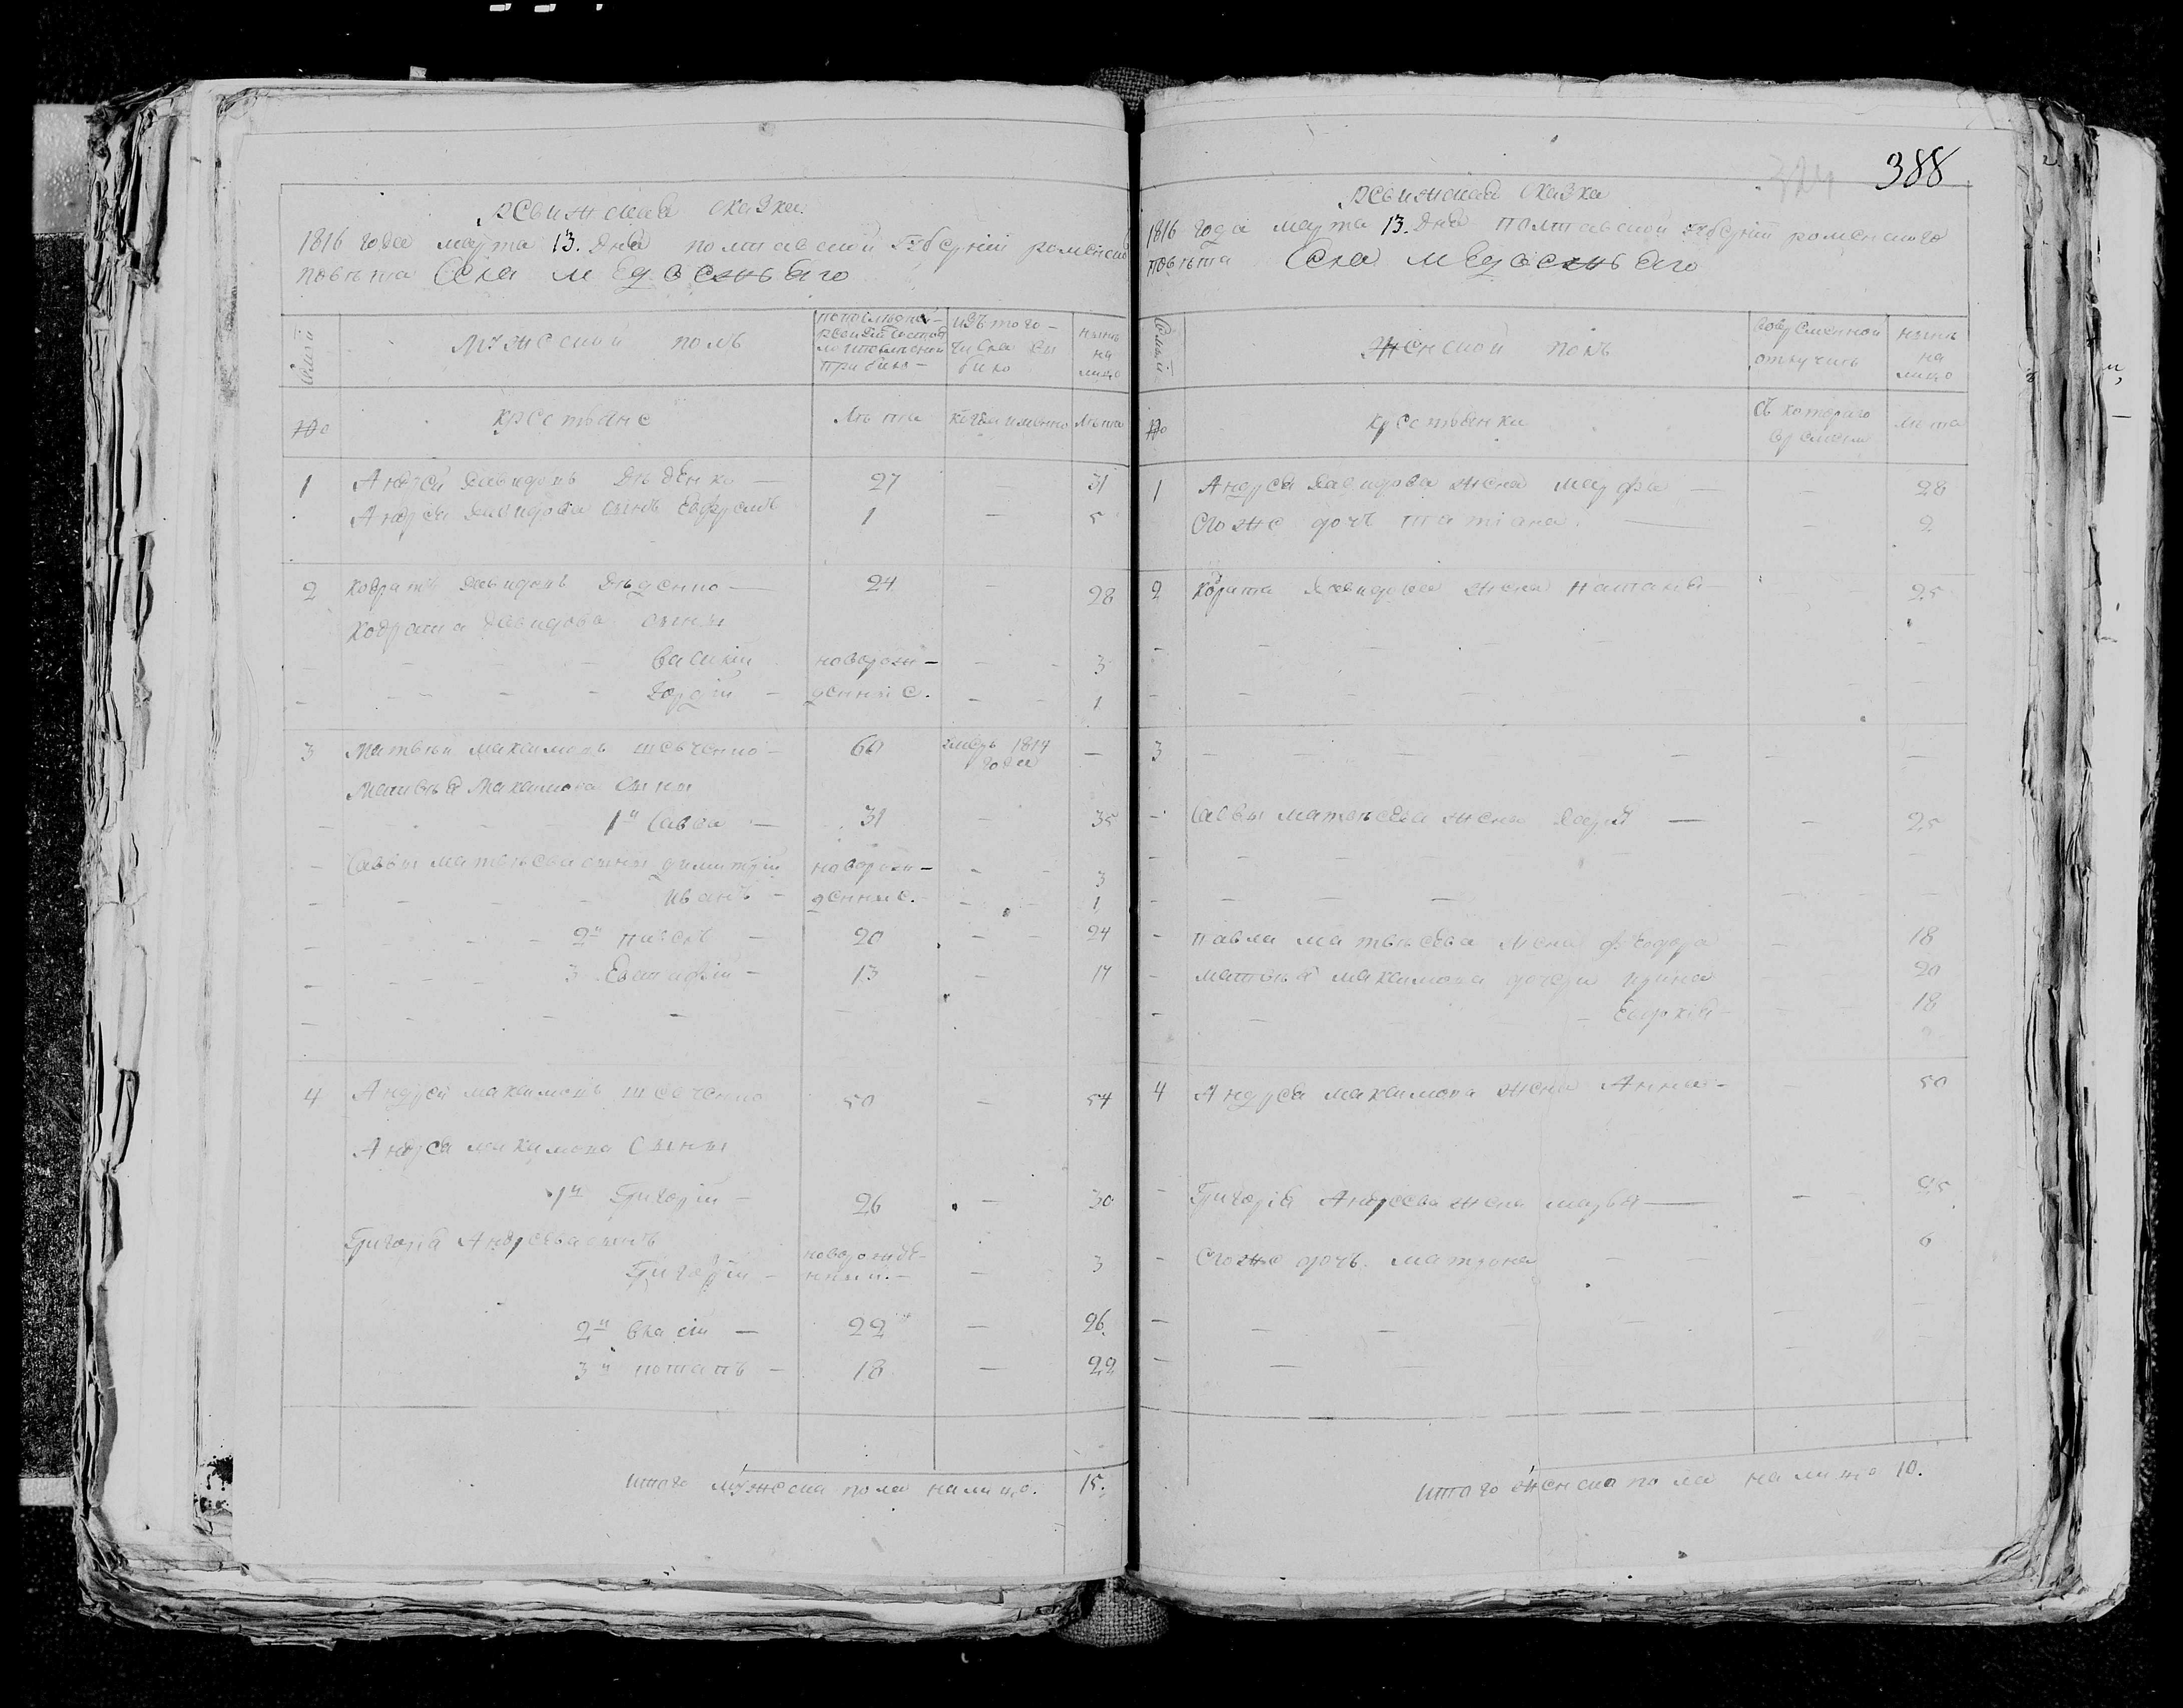 388
ревизская сказка
1816 года марта 13. дня полтавской губерніи роменско
повѣта села медвежьяго
Семьи
мужеской полъ
по последней ревизіи состояло и после оной прибыло
изъ того числа выбыло
нынѣ на лицо
№
крестьяне
лѣта
когда именно
лѣта
1 Андрей давидовъ дѣденко — 27 — 31
Андрея давидова сынъ Евфремъ 1 — 5
2 кодратъ давидовъ дѣденко — 24 — 28
кодрата давидова сыны
василій новорож- — 3
гордій — денные. — 1
3 матвѣй максимовъ шевченко — 60 умеръ 1814 года —
матвѣя максимова сыны
1й савва — 31 — 35
саввы матвѣева сыны димитрій новорож- — 3
иванъ — денные. — 1
2й павелъ — 20 — 24
3 Евстафій — 13 — 17
4 Андрей максимовъ шевченко 50 — 54
Андрея максимова сыны
1й григорій — 26 — 30
григорія Андреева сынъ
григорій — новорожде-нный. — 3
2й власій — 22 — 26
3й потапъ — 18 — 22
итого мужеска пола налицо. 15.
ревизская сказка
1816 года марта 13. дня полтавской губерніи роменскаго
повѣта села медвежьяго
Семьи
женской полъ
во временной отлучкѣ
нынѣ на лицо
№
крестьянки
съ котораго времени
лѣта
1 Андрея давидова жена марфа — — 28
его же дочь татіана — — 2
2 кодрата давидова жена наталья — 25
3 — — — —
саввы матвѣева жена дарія — — 25
павла матвѣева жена феодора — 18
матвѣя максимова дочери ирина 20
Евдокія — 18
4 Андрея максимова жена Анна — — 50
григорія Андреева жена марья — — 25
его же дочь матрона — 6
итого женска пола налицо 10.